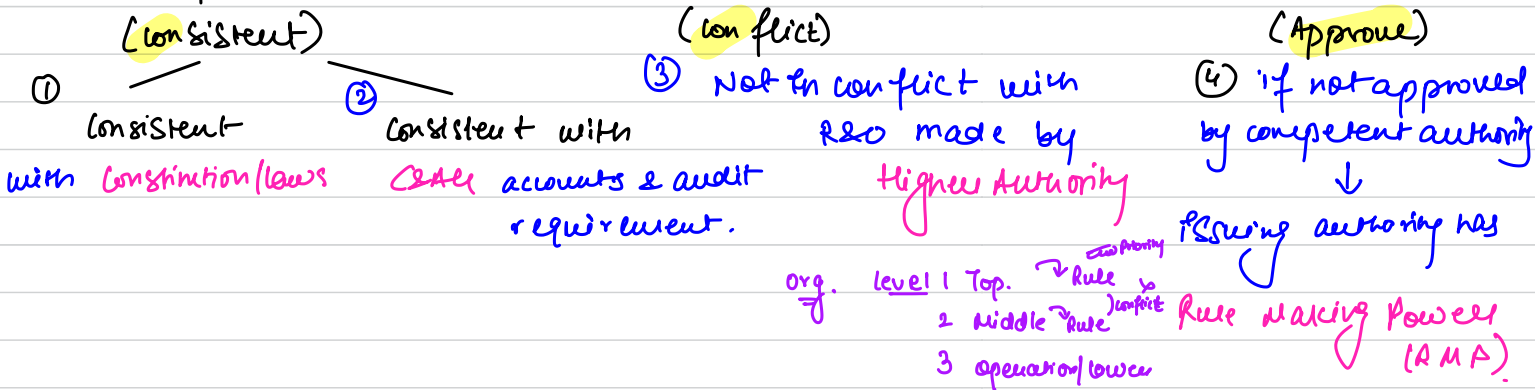 (Consistent)
①
Consistent
with Constitution/laws
②
Consistent with
C&AG accounts & audit
requirement.
(Conflict)
③ Not In conflict with
R&O made by
Higher Authority
org. level 1 Top. Rule
2 Middle Rule )conflict
3 operation/lower
(Approve)
④ if not approved
by competent authority
↓
issuing authority has
Rule Making Power
(RMP)